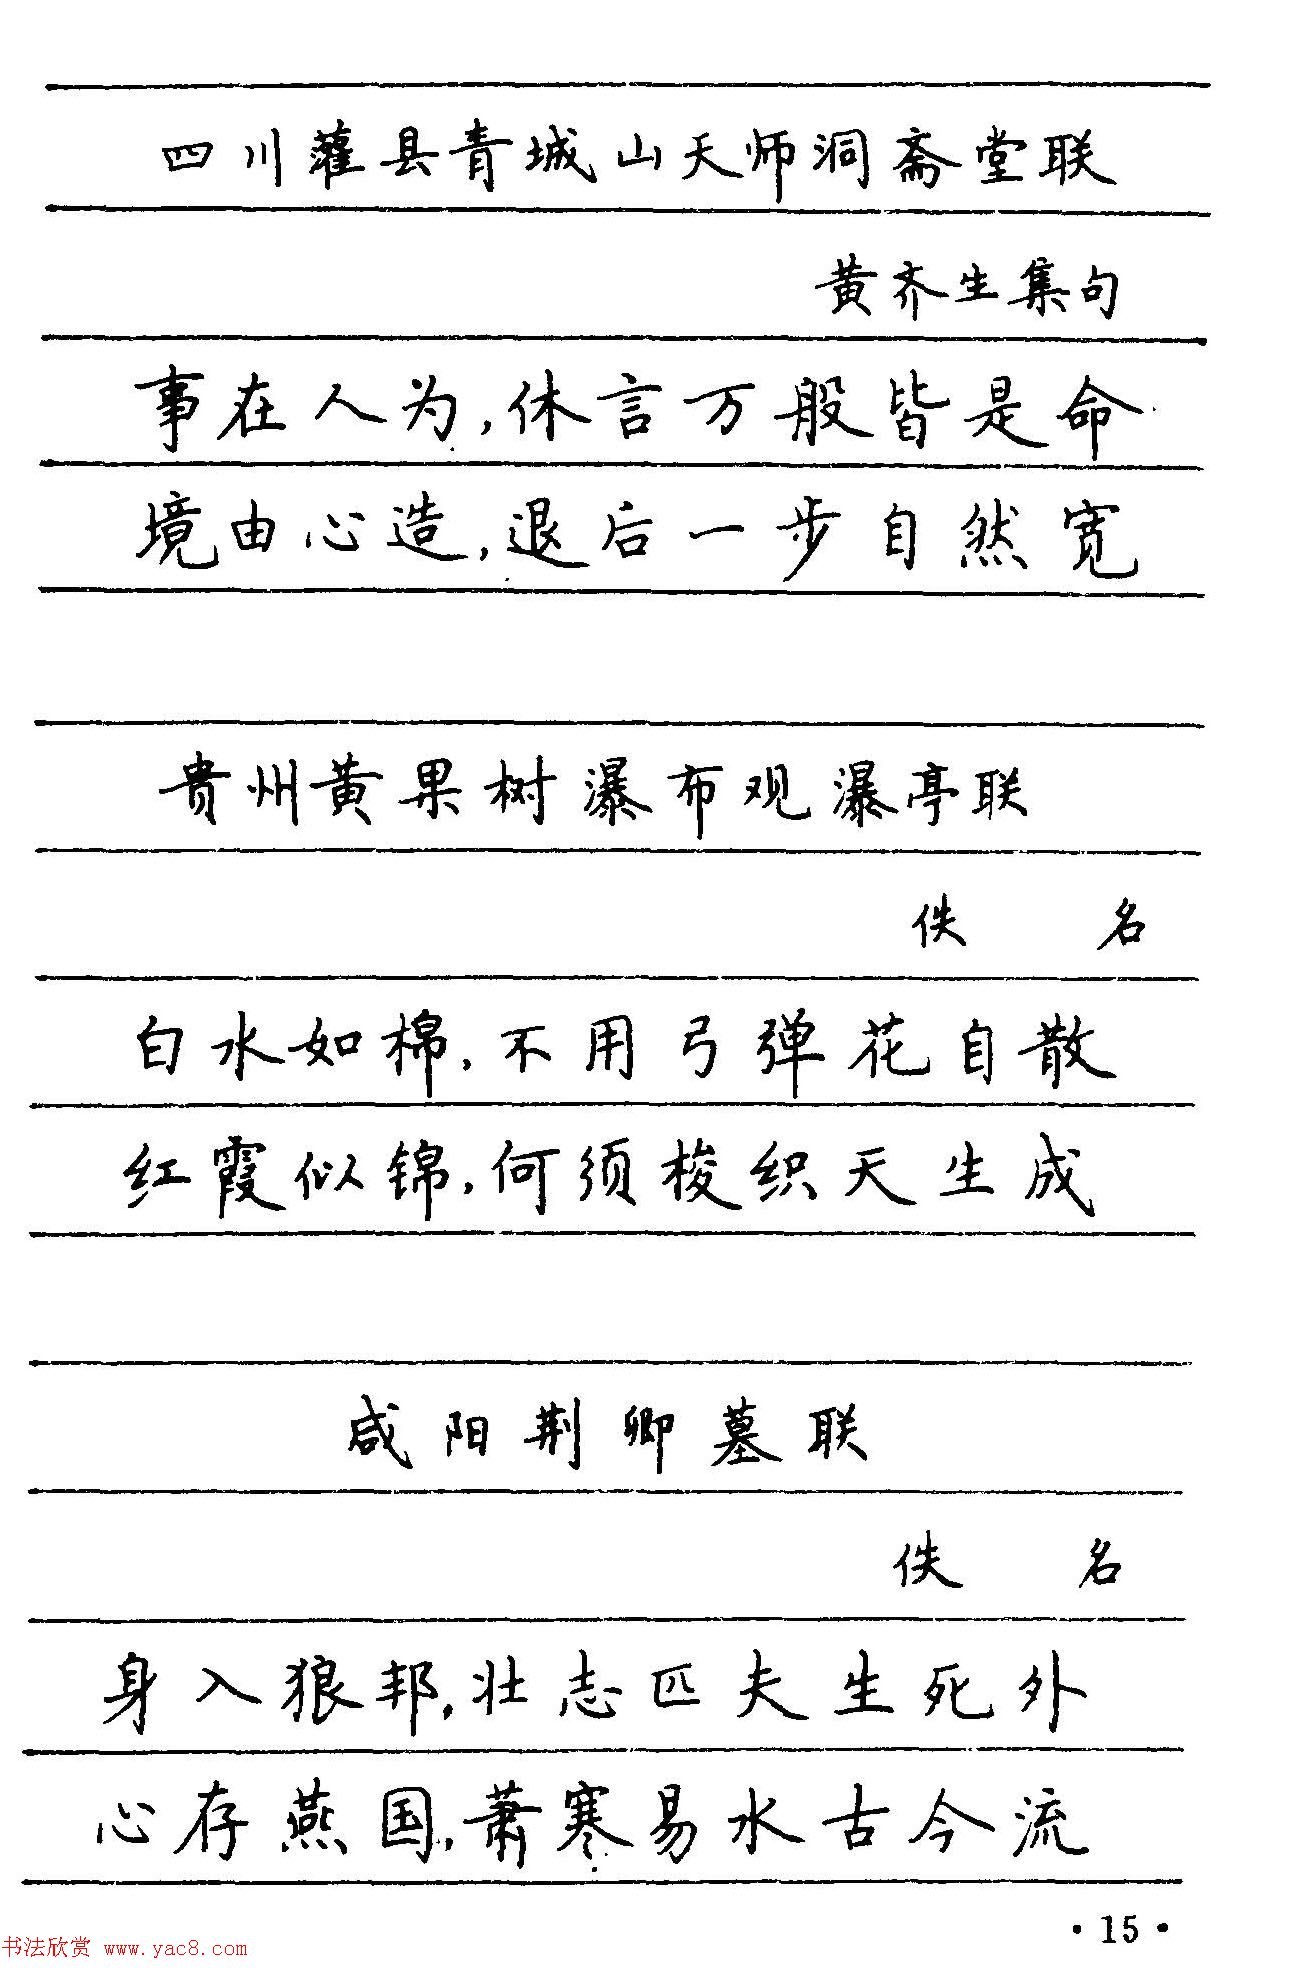 四川灌县青城山天师洞斋堂联
黄齐生集句
事在人为,休言万般皆是命
境由心造,退后一步自然宽
贵州黄果树瀑布观瀑亭联
佚 名
白水如棉,不用弓弹花自散
红霞似锦,何须梭织天生成
咸阳荆卿墓联
佚 名
身入狼邦,壮志匹夫生死外
心存燕国,萧寒易水古今流
·15·
书法欣赏 www.yac8.com